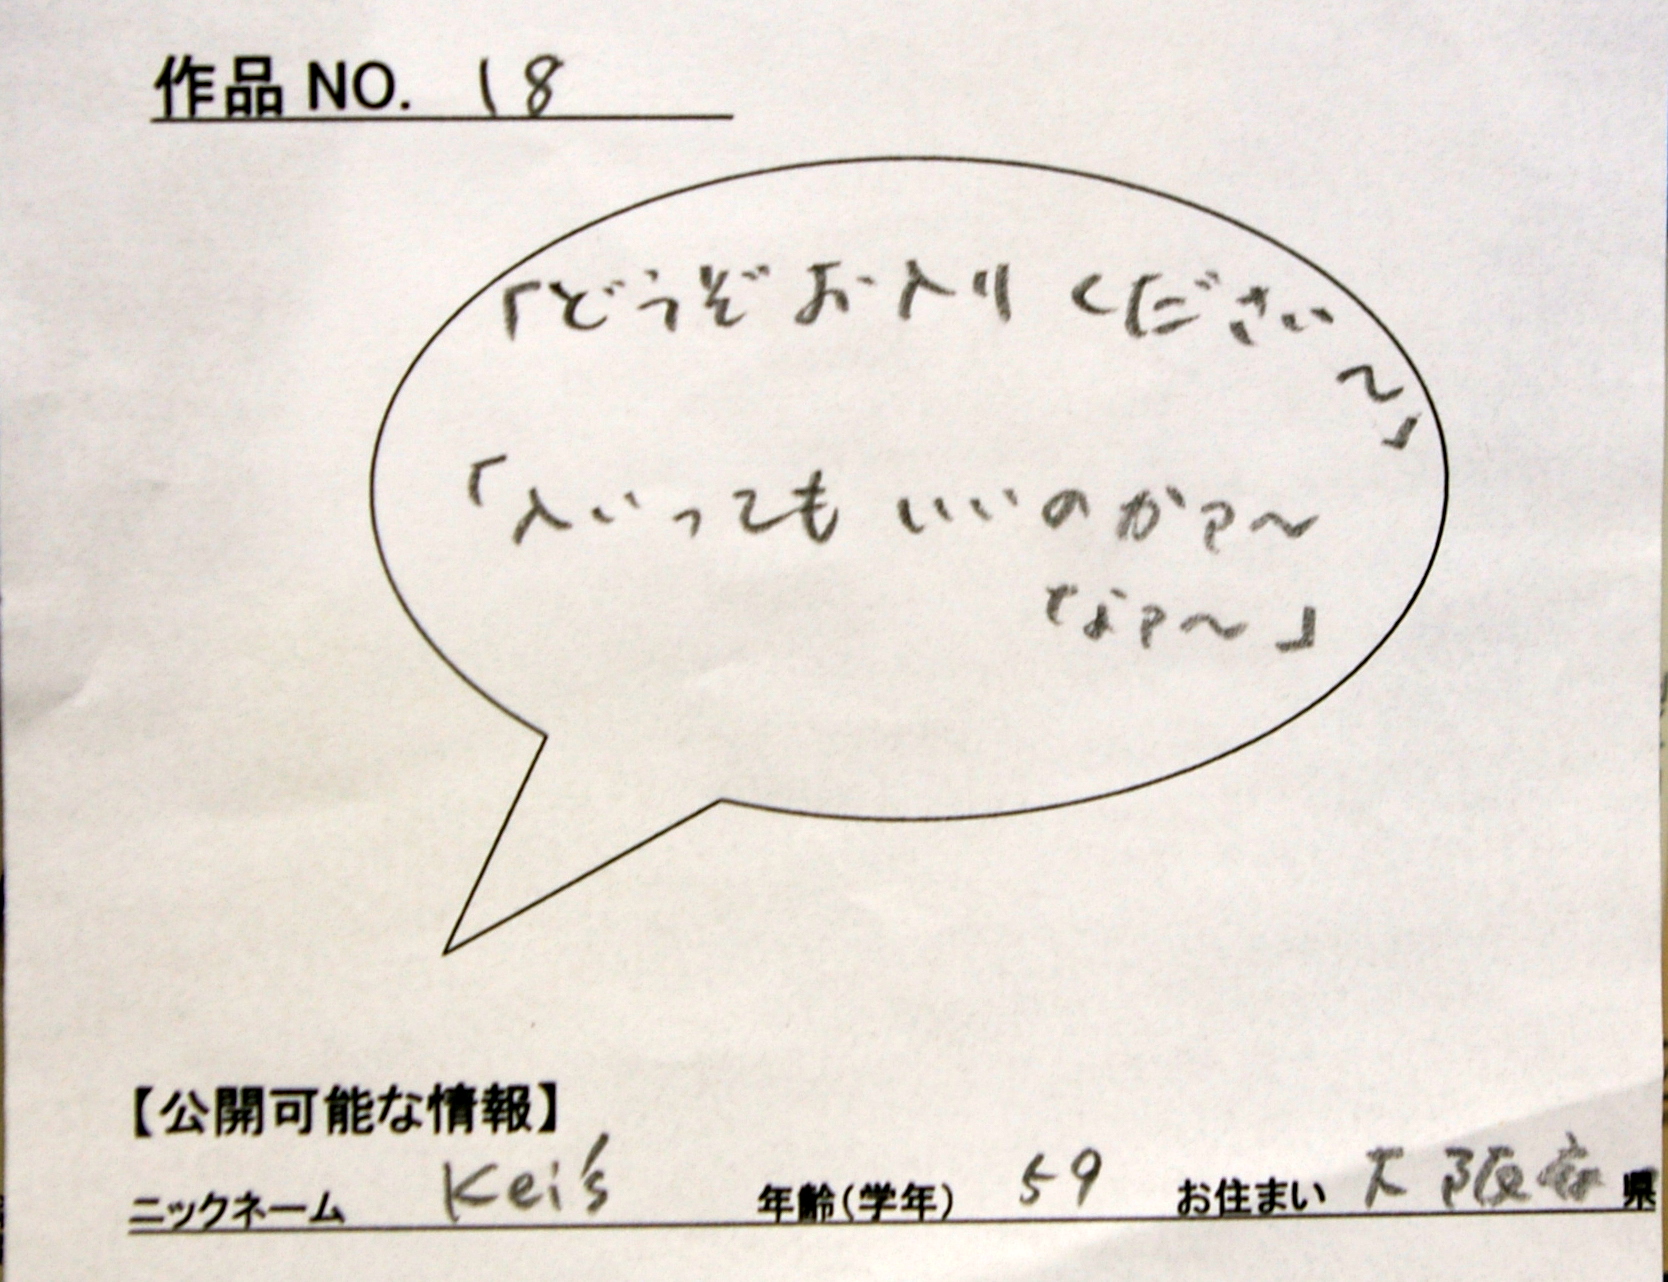 作品 NO. 18
「どうぞお入り ください
～」
「入いっても いいのかァ～
なァ～」
【公開可能な情報】
ニックネーム Kei's 年齢(学年) 59 お住まい 大阪府 県